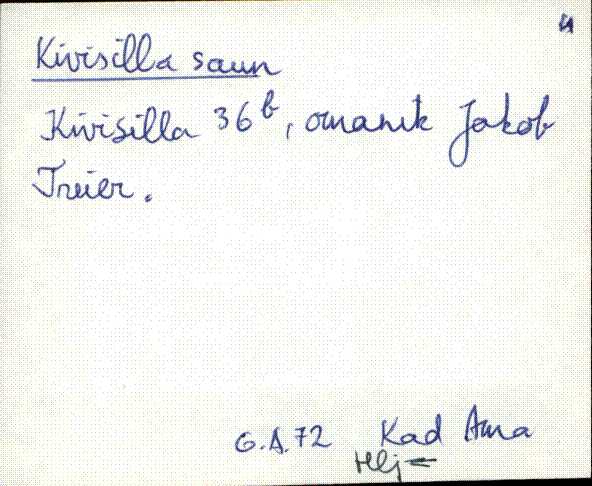 Kivisilla saun
Kivisilla 36b, omanik Jakob
Treier.
G.A.72 Kad Ama
Hlj